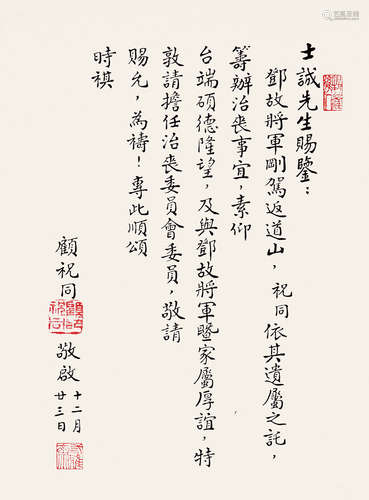 士誠先生賜鑒：
鄧故將軍剛駕返道山，祝同依其遺屬之託，
籌辦治喪事宜，素仰
台端碩德隆望，及與鄧故將軍暨家屬厚誼，特
敦請擔任治喪委員會委員，敬請
賜允，為禱！專此順頌
時祺
顧祝同 敬啟 十二月
廿三日